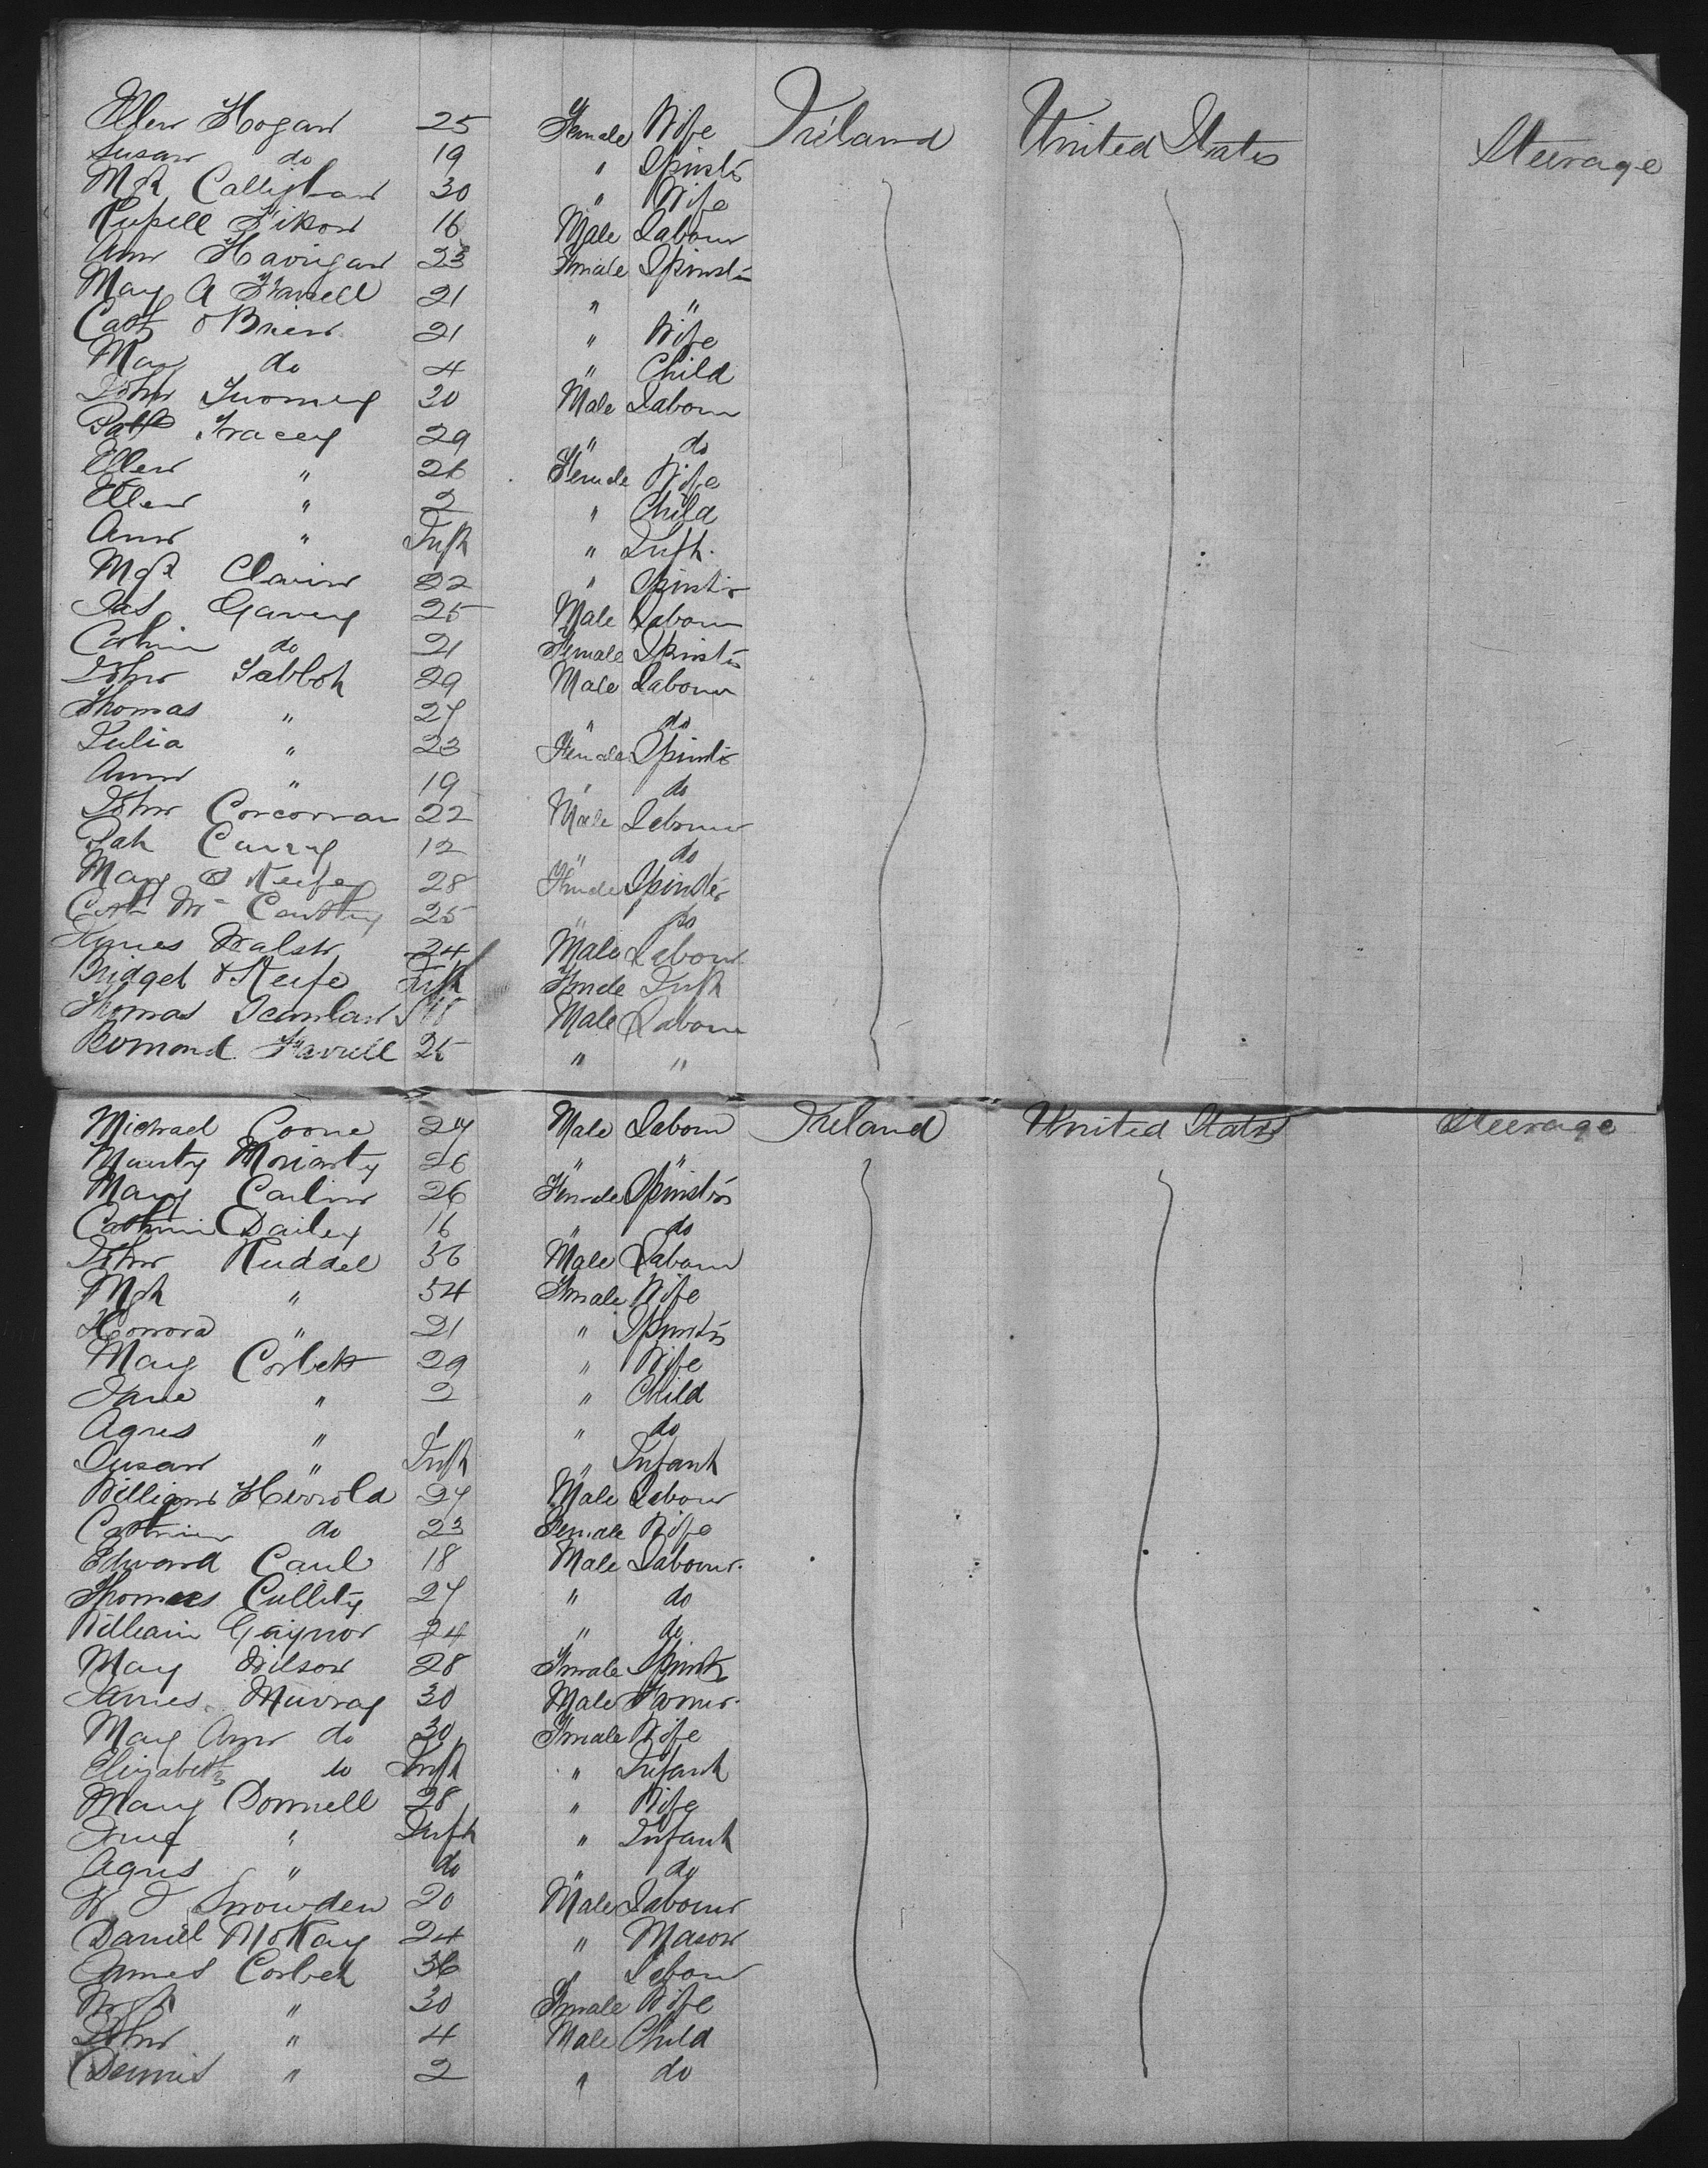 Ellen Hogan 25 Female Wife Ireland United States Steerage
Susan do 19 " Spinstr
Mgt Callighan 30 " Wife
16 Male Labour
Ann Havrigan 23 Female Spinstr
Mary A Farrell 21 " "
Cath O Brien 21 " Wife
Mary do 4 " Child
John Twomey 20 Male Labour
Patk Tracey 29 " do
Ellen " 26 Female Wife
Ellen " 2 " Child
Ann " Inft " Inft.
Mgt 22 " Spinstr
Jas Garvey 25 Male Labour
Cathrin do 21 Female Spinstr
John 29 Male Labour
Thomas " 27 " do
Julia " 23 Female Spinstr
Ann " 19 " do
John Corcorran 22 Male Labour
Pat Curry 12 " do
Mary O Keefe 28 Female Spinster
Cath Mc Carthy 25 " do
Walsh 24 Male Labour
Bridget O Keefe Inft Female Inft
Thomas Scanlan Male Labour
Farrell 25 " "
Michael Coone 27 Male Labour Ireland United States Steerage
Moriarty 26 " "
Mary Carlin 26 Female Spinstrs
Cathrin Dailey 16 " do
John Ruddel 56 Male Labour
Mgt " 54 Female Wife
Honora " 21 " Spinstr
Mary Corbett 29 " Wife
Jane " 2 " Child
Agnes " 1 " do
Susan " Inft " Infant
William Herrold 27 Male Labour
Cathrin do 23 Female Wife
Edward Caul 18 Male Labour.
Thomas Cullity 27 " do
William Gaynor 24 " do
Mary Wilson 28 Female Spinstr
James Murray 30 Male Farmer.
Mary Ann do 30 Female Wife
Elizabeth do Inft " Infant
Mary Donnell 28 " Wife
" Inft " Infant
Agnes " do " do
W J Snowden 20 Male Labour
Daniel McKay 24 " Mason
James Corbet 36 " Labour
Mgt " 30 Female Wife
John " 4 Male Child
Dennis " 2 " do